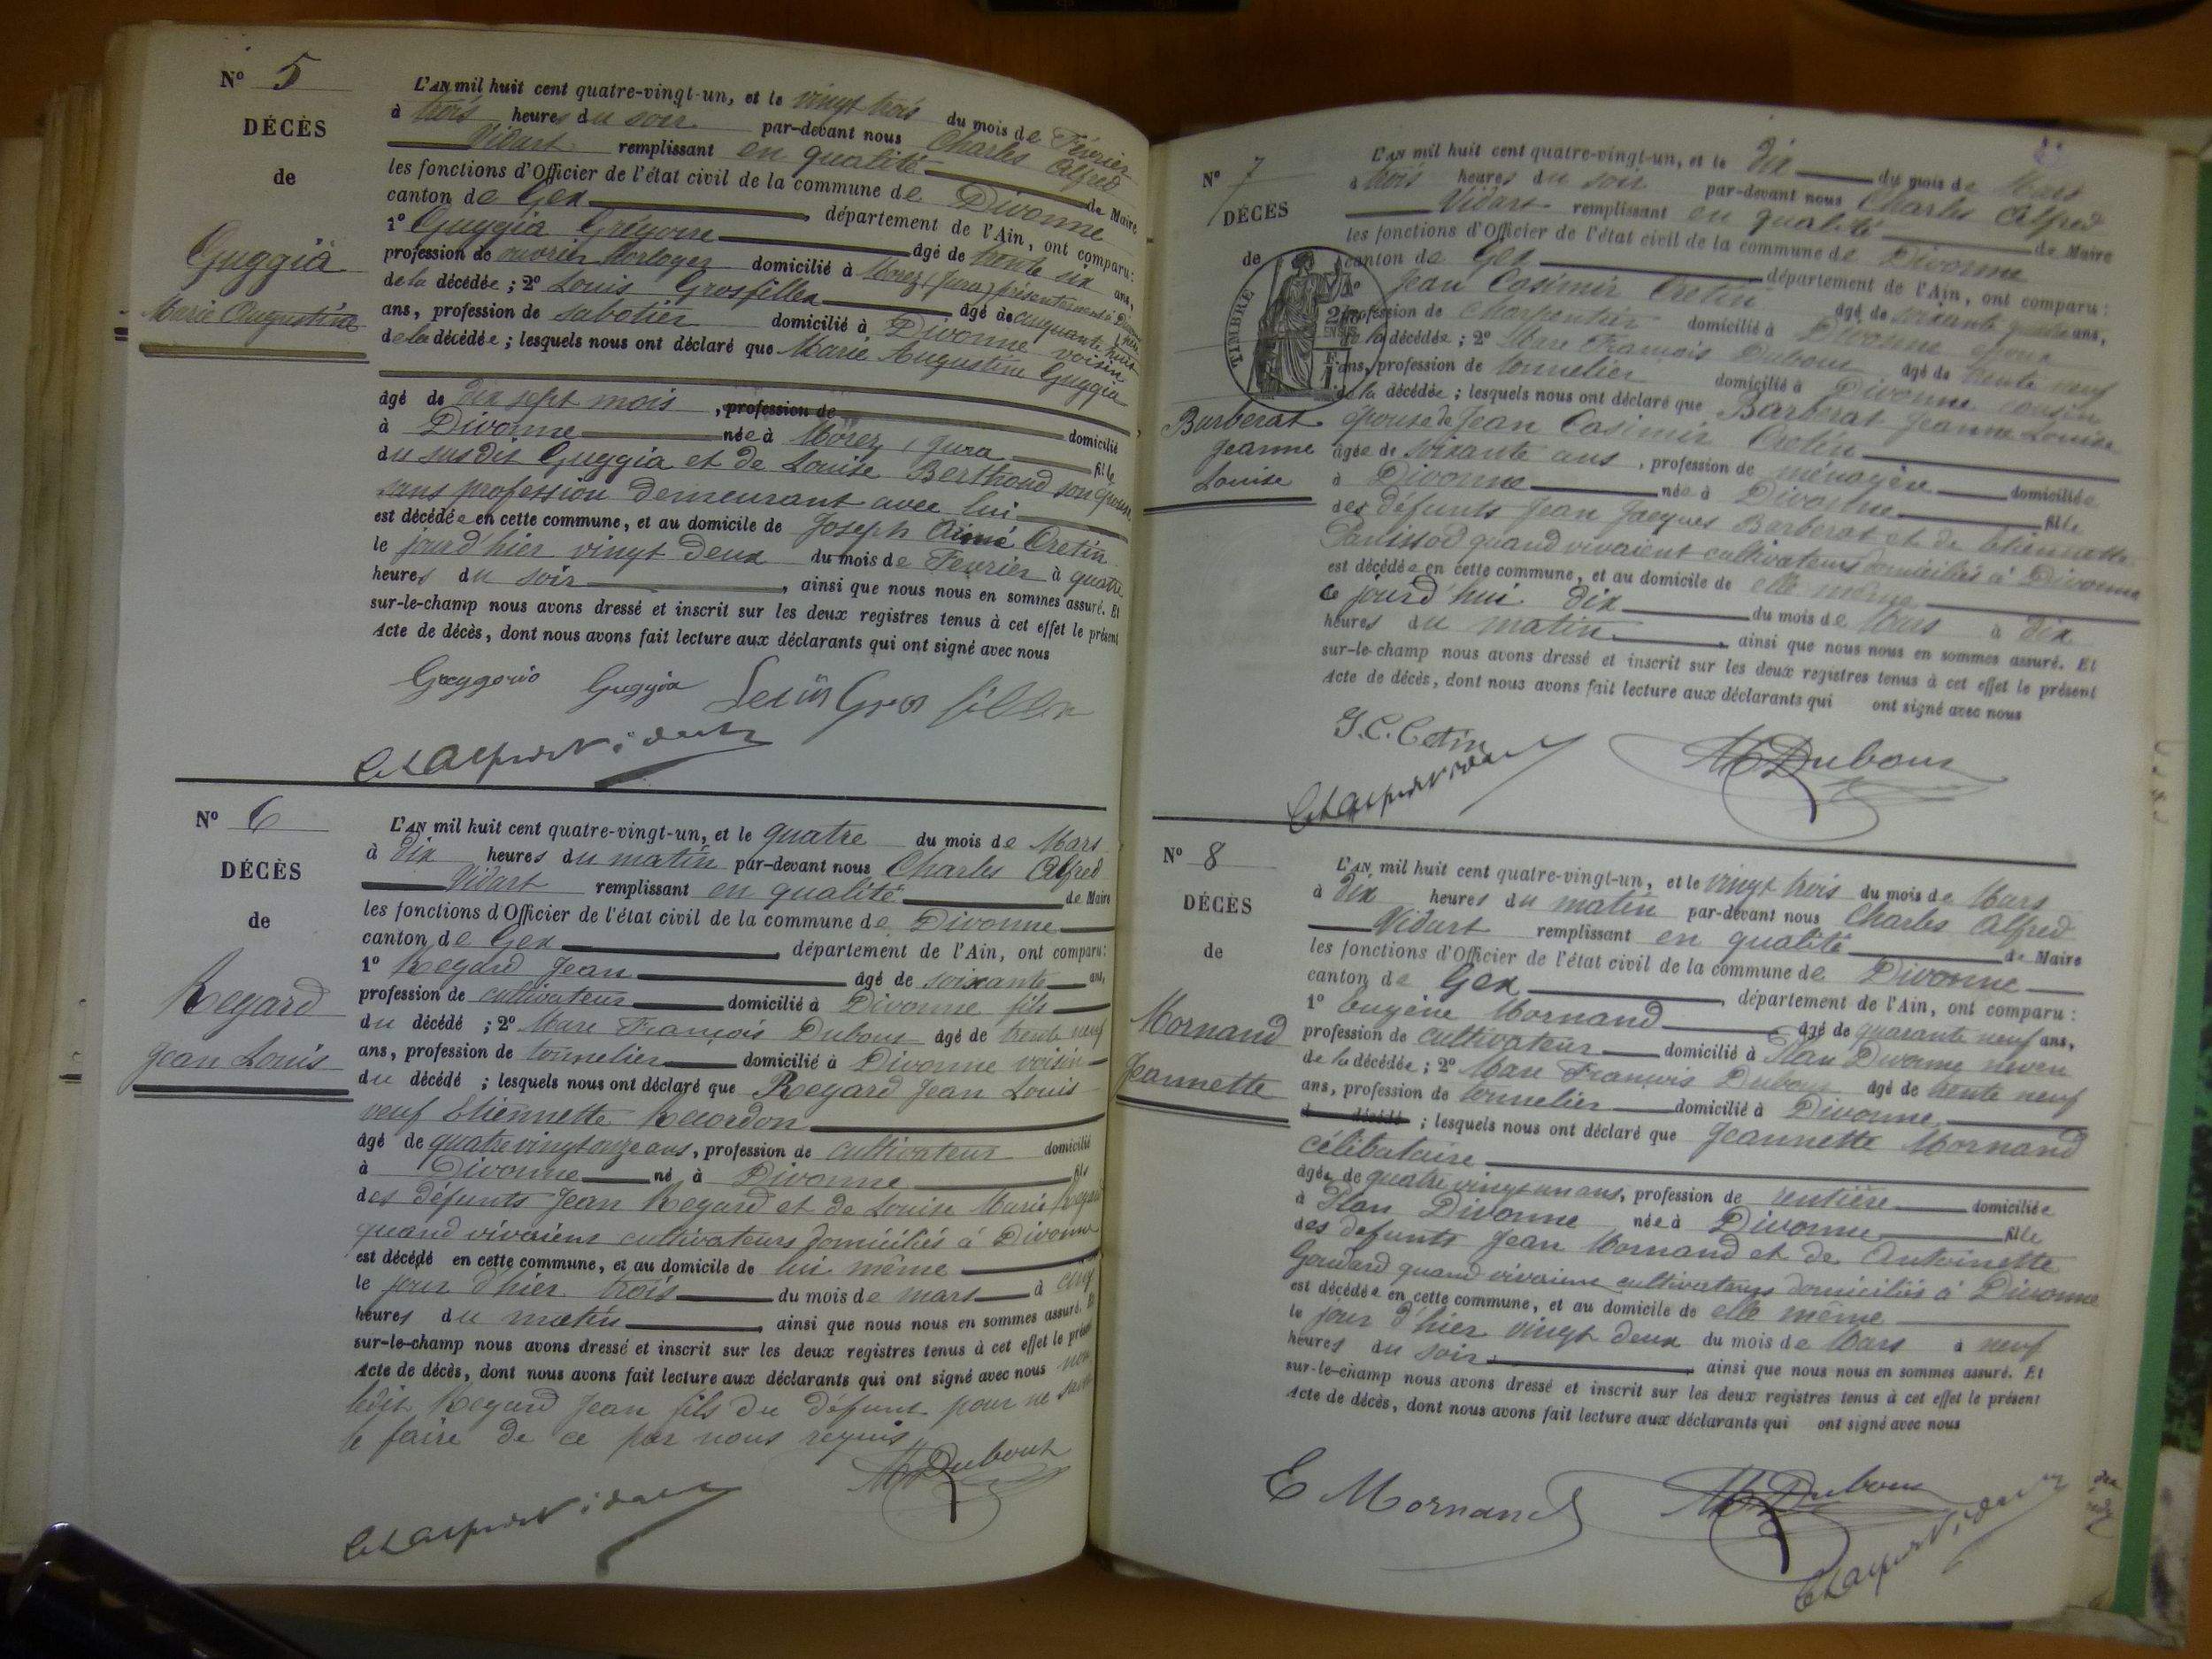 N° 5
DÉCÈS
de
Guggia
Marie Augustine
L'AN mil huit cent quatre-vingt-un, et le vingt trois du mois de Février
à trois heures du soir par-devant nous Charles Alfred
Vidart remplissant en qualité de Maire
les fonctions d'Officier de l'état civil de la commune de Divonne
canton de Gex, département de l'Ain, ont comparu:
1° Guggia Grégoire âgé de trente six ans,
profession de ouvrier horloger domicilié à Morez (Jura) présentement à Divonne, père
de la décédée; 2° Louis Grosfillex âgé de cinquante huit
ans, profession de sabotier domicilié à Divonne voisin
de la décédée; lesquels nous ont déclaré que Marie Augustine Guggia
âgé de dix sept mois, profession de domicilié
à Divonne née à Morez, Jura fille
du susdit Guggia et de Louise Berthoud son épouse
sans profession demeurant avec lui
est décédée en cette commune, et au domicile de Joseph Aimé Cretin
le jourd'hier vingt deux du mois de Fevrier à quatre
heures du soir, ainsi que nous nous en sommes assuré. Et
sur-le-champ nous avons dressé et inscrit sur les deux registres tenus à cet effet le présent
Acte de décès, dont nous avons fait lecture aux déclarants qui ont signé avec nous
Greggorio Guggia Louis Gros fillex
Ch Alfred Vidart
N° 6
DÉCÈS
de
Regard
Jean Louis
L'AN mil huit cent quatre-vingt-un, et le quatre du mois de Mars
à dix heures du matin par-devant nous Charles Alfred
Vidart remplissant en qualité de Maire
les fonctions d'Officier de l'état civil de la commune de Divonne
canton de Gex, département de l'Ain, ont comparu:
1° Regard Jean âgé de soixante ans,
profession de cultivateur domicilié à Divonne fils
du décédé; 2° Marc François Dubout âgé de trente neuf
ans, profession de tonnelier domicilié à Divonne voisin
du décédé; lesquels nous ont déclaré que Regard Jean Louis
veuf Etiennette Recordon
âgé de quatre vingt onze ans, profession de cultivateur domicilié
à Divonne né à Divonne fils
des défunts Jean Regard et de Louise Marie Regard
quand vivaient cultivateurs domiciliés à Divonne
est décédé en cette commune, et au domicile de lui même
le jour d'hier trois du mois de mars à cinq
heures du matin, ainsi que nous nous en sommes assuré. Et
sur-le-champ nous avons dressé et inscrit sur les deux registres tenus à cet effet le présent
Acte de décès, dont nous avons fait lecture aux déclarants qui ont signé avec nous non
ledit Regard Jean fils du défunt pour ne savoir
le faire de ce par nous requis
M Dubout
Ch Alfred Vidart
N° 7
DÉCÈS
de
TIMBRE
Barberat
Jeanne
Louise
L'AN mil huit cent quatre-vingt-un, et le dix du mois de Mars
à trois heures du soir par-devant nous Charles Alfred
Vidart remplissant en qualité de Maire
les fonctions d'Officier de l'état civil de la commune de Divonne
canton de Gex département de l'Ain, ont comparu:
1° Jean Casimir Cretin âgé de soixante quatre ans,
profession de charpentier domicilié à Divonne époux
de la décédée; 2° Marc François Dubout âgé de trente neuf
ans, profession de tonnelier domicilié à Divonne cousin
de la décédée; lesquels nous ont déclaré que Barberat Jeanne Louise
épouse de Jean Casimir Cretin
âgée de soixante ans, profession de ménagère domiciliée
à Divonne née à Divonne fille
des défunts Jean Jacques Barberat et de Etiennette
Panissod quand vivaient cultivateurs domiciliés à Divonne
est décédée en cette commune, et au domicile de elle même
ce jourd'hui dix du mois de Mars à dix
heures du matin, ainsi que nous nous en sommes assuré. Et
sur-le-champ nous avons dressé et inscrit sur les deux registres tenus à cet effet le présent
Acte de décès, dont nous avons fait lecture aux déclarants qui ont signé avec nous
J. C. Cetin
M Dubout
Ch Alfred Vidart
N° 8
DÉCÈS
de
Mornand
Jeannette
L'AN mil huit cent quatre-vingt-un, et le vingt trois du mois de Mars
à dix heures du matin par-devant nous Charles Alfred
Vidart remplissant en qualité de Maire
les fonctions d'Officier de l'état civil de la commune de Divonne
canton de Gex, département de l'Ain, ont comparu:
1° Eugène Mornand âgé de quarante neuf ans,
profession de cultivateur domicilié à Plan Divonne neveu
de la décédée; 2° Marc François Dubout âgé de trente neuf
ans, profession de tonnelier domicilié à Divonne
d décédé; lesquels nous ont déclaré que Jeannette Mornand
célibataire
âgée de quatre vingt un ans, profession de rentière domiciliée
à Plan Divonne née à Divonne fille
des defunts Jean Mornand et de Antoinette
Goudard quand vivaient cultivateurs domiciliés à Divonne
est décédée en cette commune, et au domicile de elle même
le jour d'hier vingt deux du mois de Mars à neuf
heures du soir ainsi que nous nous en sommes assuré. Et
sur-le-champ nous avons dressé et inscrit sur les deux registres tenus à cet effet le présent
Acte de décès, dont nous avons fait lecture aux déclarants qui ont signé avec nous
E Mornand
M Dubout
Ch Alfred Vidart